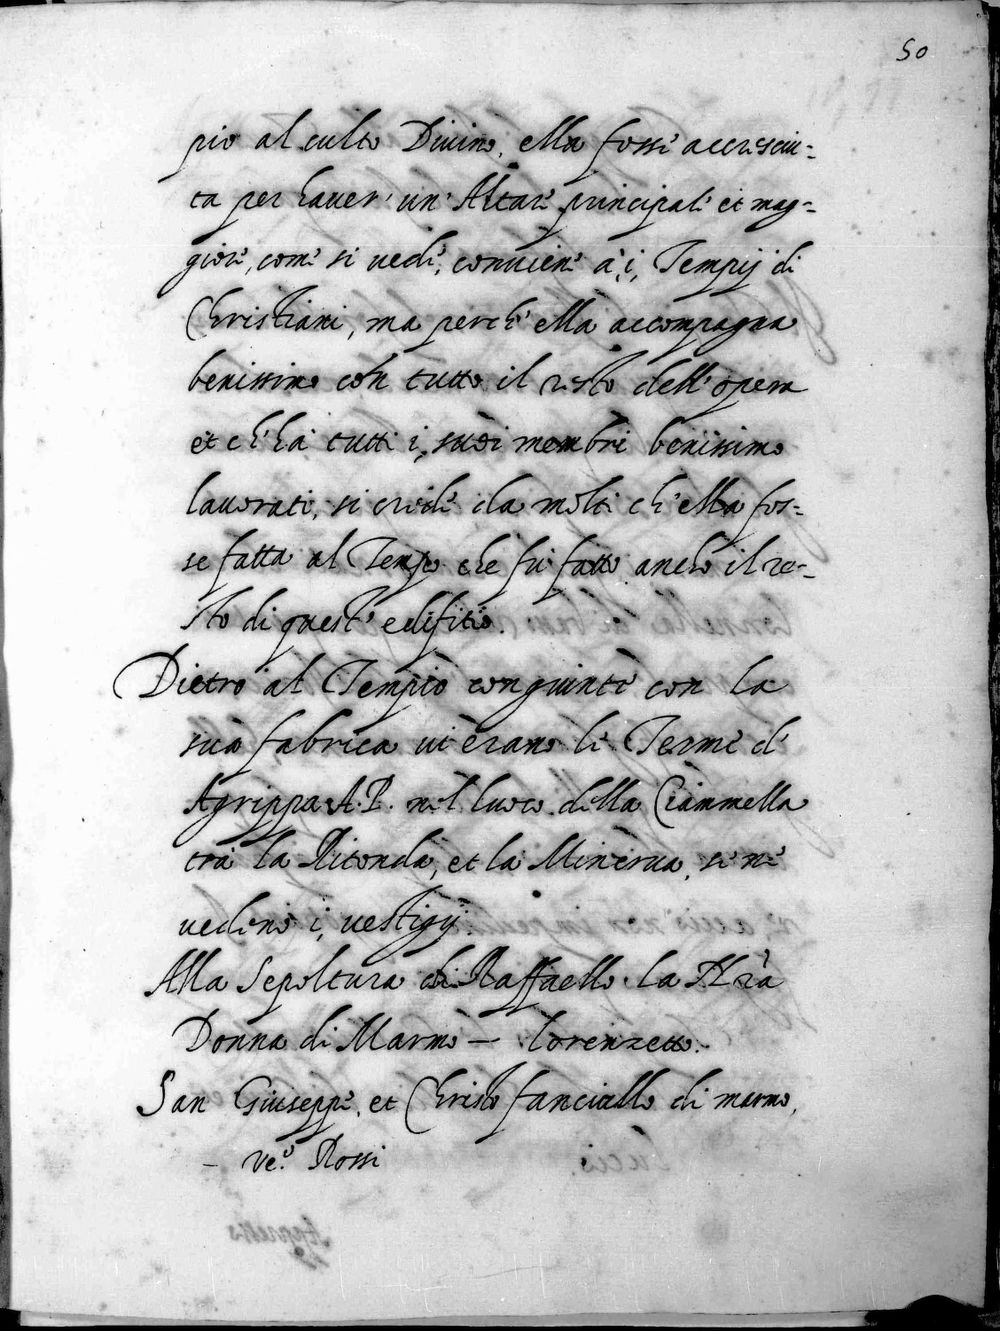 50
pio al culto Diuino, ella fosse accresciu-
ta per hauer' un' Altare principale et mag-
giore, come si uede, conuiene à, i, Tempij di
Christiani, ma perche ella accompagna
benissimo con tutto il resto dell'opera
et ch'hà tutti i, suoi membri benissimo
lauorati, si crede da molti ch'ella fos-
se fatta al Tempo che fù fatto ancho il re-
sto di queste edifitio.
Dietro al Tempio congiunte con la
sua fabrica ui erano le Terme d'
Agrippa A.P. nel luoco della Ciammella
trà la Ritonda, et la Minerua, se ne
uedono i, vestigij
Alla Sepoltura di Raffaello la Nra
Donna di Marmo — Lorenzetto.
San Giuseppe, et Christo fanciullo di marmo,
— Ve.º Rossi